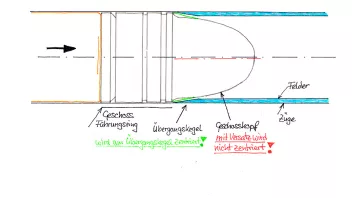 Felder
Züge
Geschoss
Führungsring
Übergangskegel
Geschosskopf
wird am Übergangskegel zentriert!
mit Versatz wird
nicht zentriert!